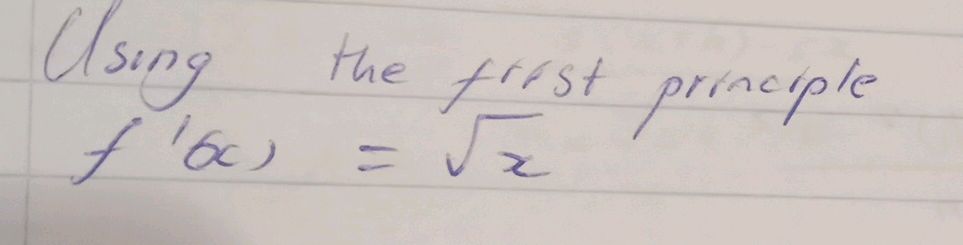 Using the first principle
f'(x) = √x